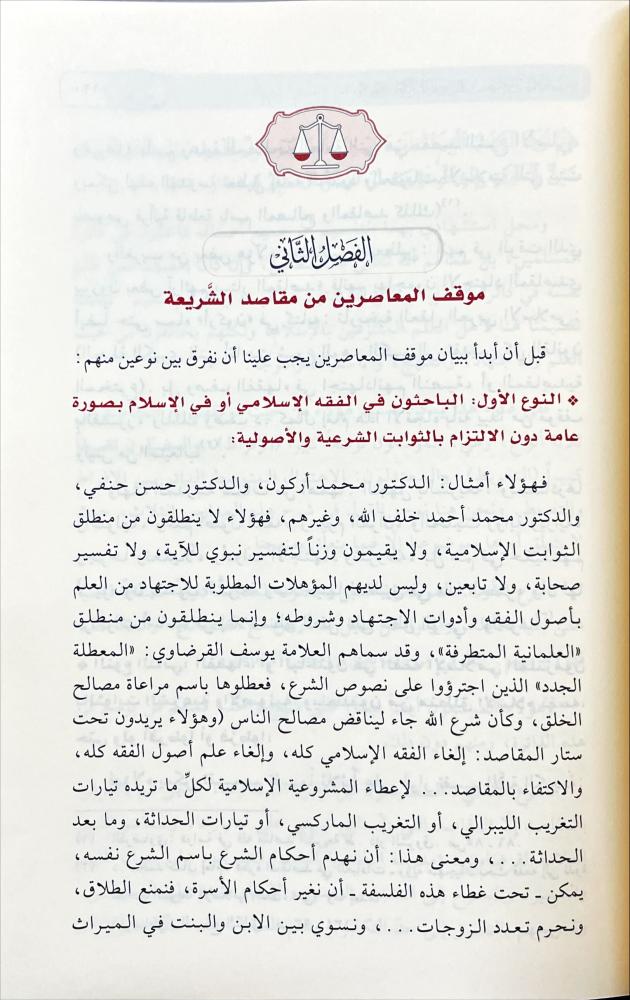 الفَصْلُ الثَّانِي
موقف المعاصرين من مقاصد الشَّريعة
قبل أن أبدأ ببيان موقف المعاصرين يجب علينا أن نفرق بين نوعين منهم:
❖ النوع الأول: الباحثون في الفقه الإسلامي أو في الإسلام بصورة
عامة دون الالتزام بالثوابت الشرعية والأصولية:
فهؤلاء أمثال: الدكتور محمد أركون، والدكتور حسن حنفي،
والدكتور محمد أحمد خلف الله، وغيرهم، فهؤلاء لا ينطلقون من منطلق
الثوابت الإسلامية، ولا يقيمون وزناً لتفسير نبوي للآية، ولا تفسير
صحابة، ولا تابعين، وليس لديهم المؤهلات المطلوبة للاجتهاد من العلم
بأصول الفقه وأدوات الاجتهاد وشروطه؛ وإنما ينطلقون من منطلق
«العلمانية المتطرفة»، وقد سماهم العلامة يوسف القرضاوي: «المعطلة
الجدد» الذين اجترؤوا على نصوص الشرع، فعطلوها باسم مراعاة مصالح
الخلق، وكأن شرع الله جاء ليناقض مصالح الناس (وهؤلاء يريدون تحت
ستار المقاصد: إلغاء الفقه الإسلامي كله، وإلغاء علم أصول الفقه كله،
والاكتفاء بالمقاصد... لإعطاء المشروعية الإسلامية لكلِّ ما تريده تيارات
التغريب الليبرالي، أو التغريب الماركسي، أو تيارات الحداثة، وما بعد
الحداثة...، ومعنى هذا: أن نهدم أحكام الشرع باسم الشرع نفسه،
يمكن ـ تحت غطاء هذه الفلسفة ـ أن نغير أحكام الأسرة، فنمنع الطلاق،
ونحرم تعدد الزوجات...، ونسوي بين الابن والبنت في الميراث